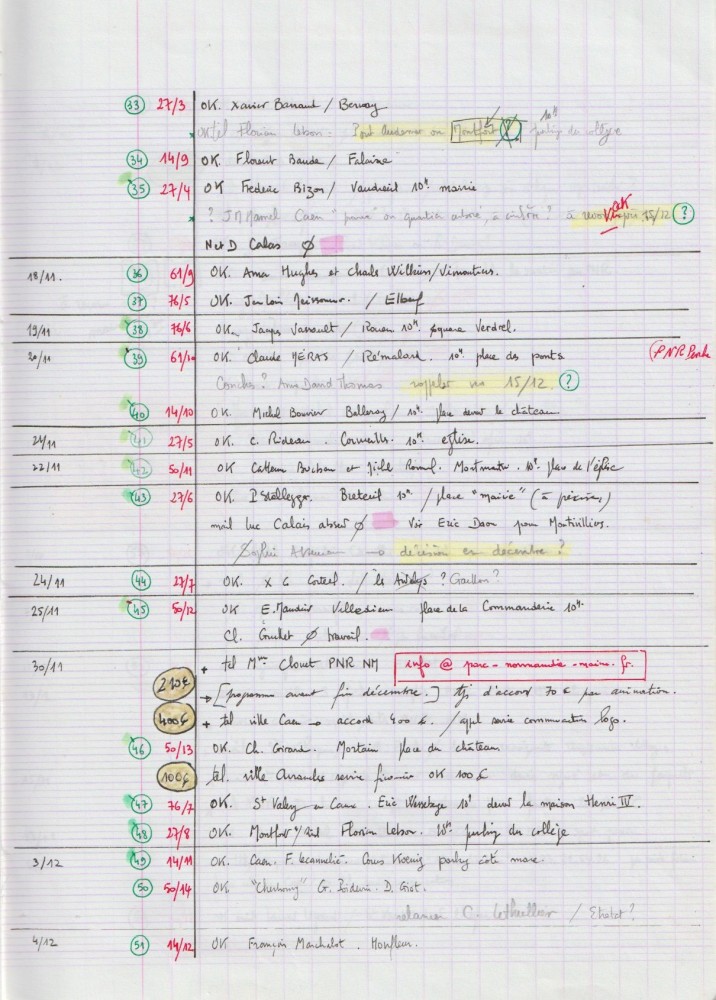 33 27/3 OK. Xavier / Bernay
OK tel Florian Lebon : Pont Audemer ou Montfort ? 10H parking du collège
34 14/9 OK. Florent Baude / Falaise
35 27/4 OK Frédéric Bizon / Vaudreuil 10H. mairie
? JM Hamel Caen " " ou quartier , à ? à 15/12 ? OK
N et D Calas Ø
18/11. 36 61/9 OK. Hughes et Charles Wilkins / Vimoutiers.
37 76/5 OK. Jean Louis . / Elbeuf
19/11 38 76/6 OK. Jacques / Rouen 10H. square Verdrel.
20/11 39 61/10 OK. Claude MÉRAS / Rémalard. 10H. place des ponts PNR Perche
Conches ? David Thomas rappeler 15/12. ?
40 14/10 OK. Michel Bouvier Balleroy / 10H. place devant le château
21/11 41 27/5 OK. C. Rideau . Cormeilles. 10H. église.
22/11 42 50/11 OK et . Montmartin . 10H. place de l'église
43 27/6 OK. . Breteuil 10H. / place "mairie" (à préciser)
mail Luc Calais absent Ø Voir Eric pour Montivilliers.
Sophie → décision en décembre ?
24/11 44 27/7 OK. X C . / les Andelys ? Gaillon ?
25/11 45 50/12 OK E. Villedieu place de la Commanderie 10H.
Cl. Ø travail.
30/11 + tel Mme Clouet PNR NM info @ parc - normandie - maine. fr.
210€ → [programme avant fin décembre.] tjs d'accord 70 € par animation.
400€ + tel ville Caen → accord 400 €. / appel service communication logo.
46 50/13 OK. Ch. Girard. Mortain place du château
100€ tel. ville Avranches service OK 100 €
47 76/7 OK. St Valery en Caux . Eric 10H devant la maison Henri IV.
48 27/8 OK. Montfort s/ Florian Lebon. 10H. parking du collège
3/12 49 14/11 OK. Caen. F. . Cours Koenig parking côté
50 50/14 OK "Cherbourg" G. . D. Giot.
relancer C. Lethuillier / Etretat ?
4/12 51 14/12 OK François . Honfleur.